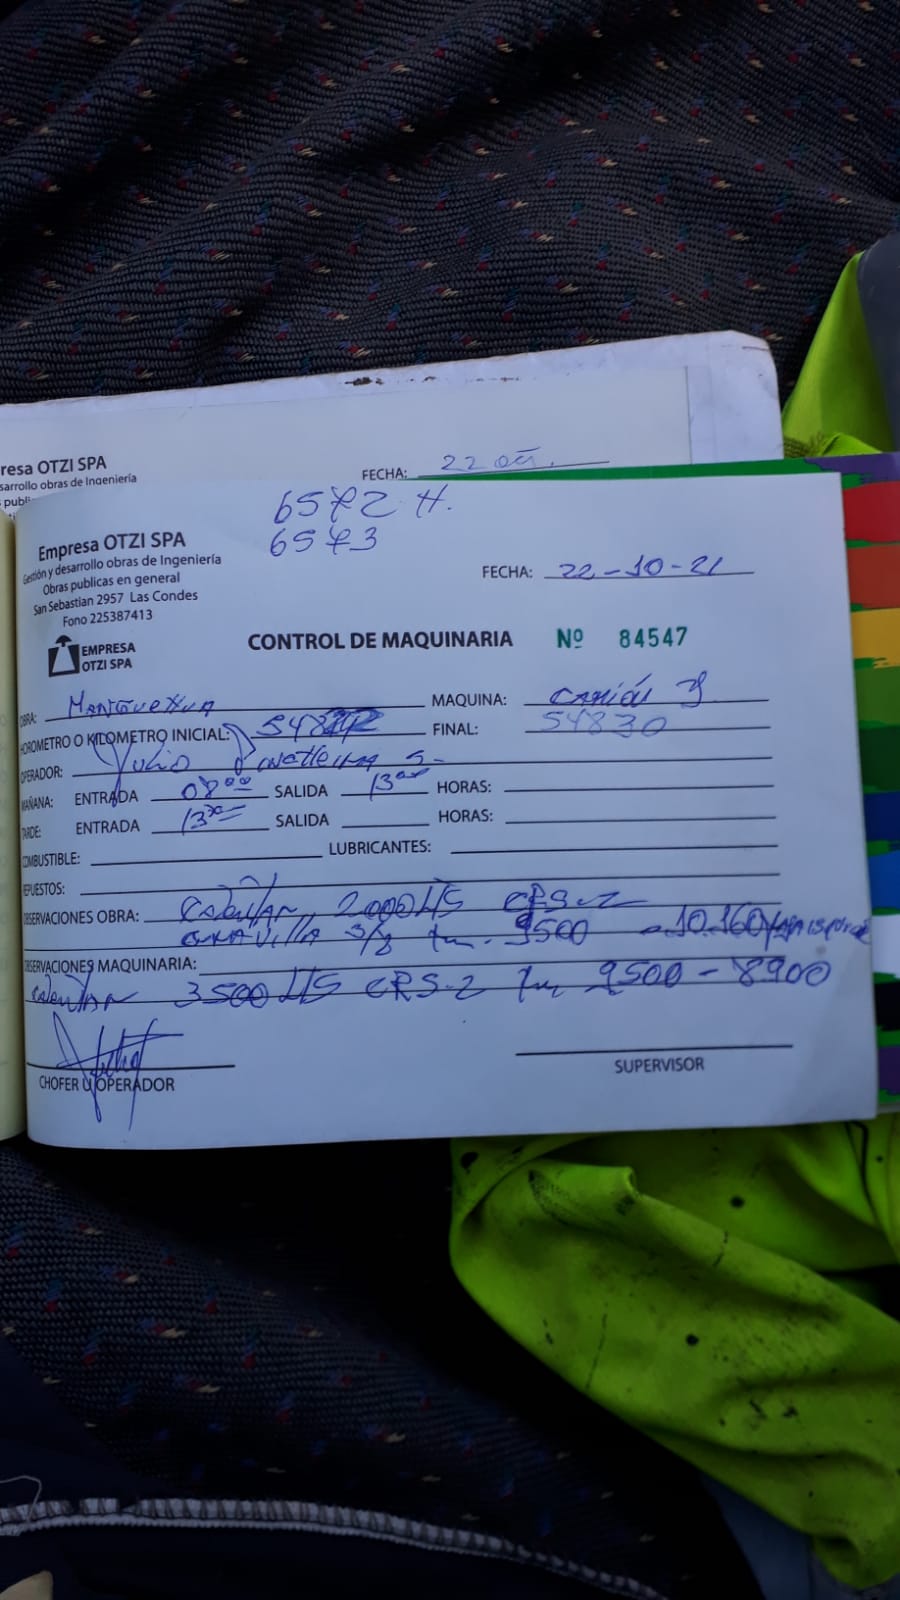 resa OTZI SPA
sarrollo obras de Ingeniería
s publi
FECHA: 22 oct.
6572 H.
6573
Empresa OTZI SPA
Gestión y desarrollo obras de Ingeniería
Obras publicas en general
San Sebastian 2957 Las Condes
Fono 225387413
FECHA: 22-10-21
EMPRESA
OTZI SPA
CONTROL DE MAQUINARIA Nº 84547
OBRA: MAQUINA: CAMIÓN
HOROMETRO O KILOMETRO INICIAL: FINAL: 54830
OPERADOR: Julio
MAÑANA: ENTRADA 08:00 SALIDA 13:00 HORAS:
TARDE: ENTRADA SALIDA HORAS:
COMBUSTIBLE: LUBRICANTES:
REPUESTOS:
OBSERVACIONES OBRA: 2.000 Lts CRS-2
GRAVILLA 3/8 Km. 9500 - 10.160
OBSERVACIONES MAQUINARIA:
3500 Lts CRS-2 Km 9500 - 8900
CHOFER U OPERADOR
SUPERVISOR